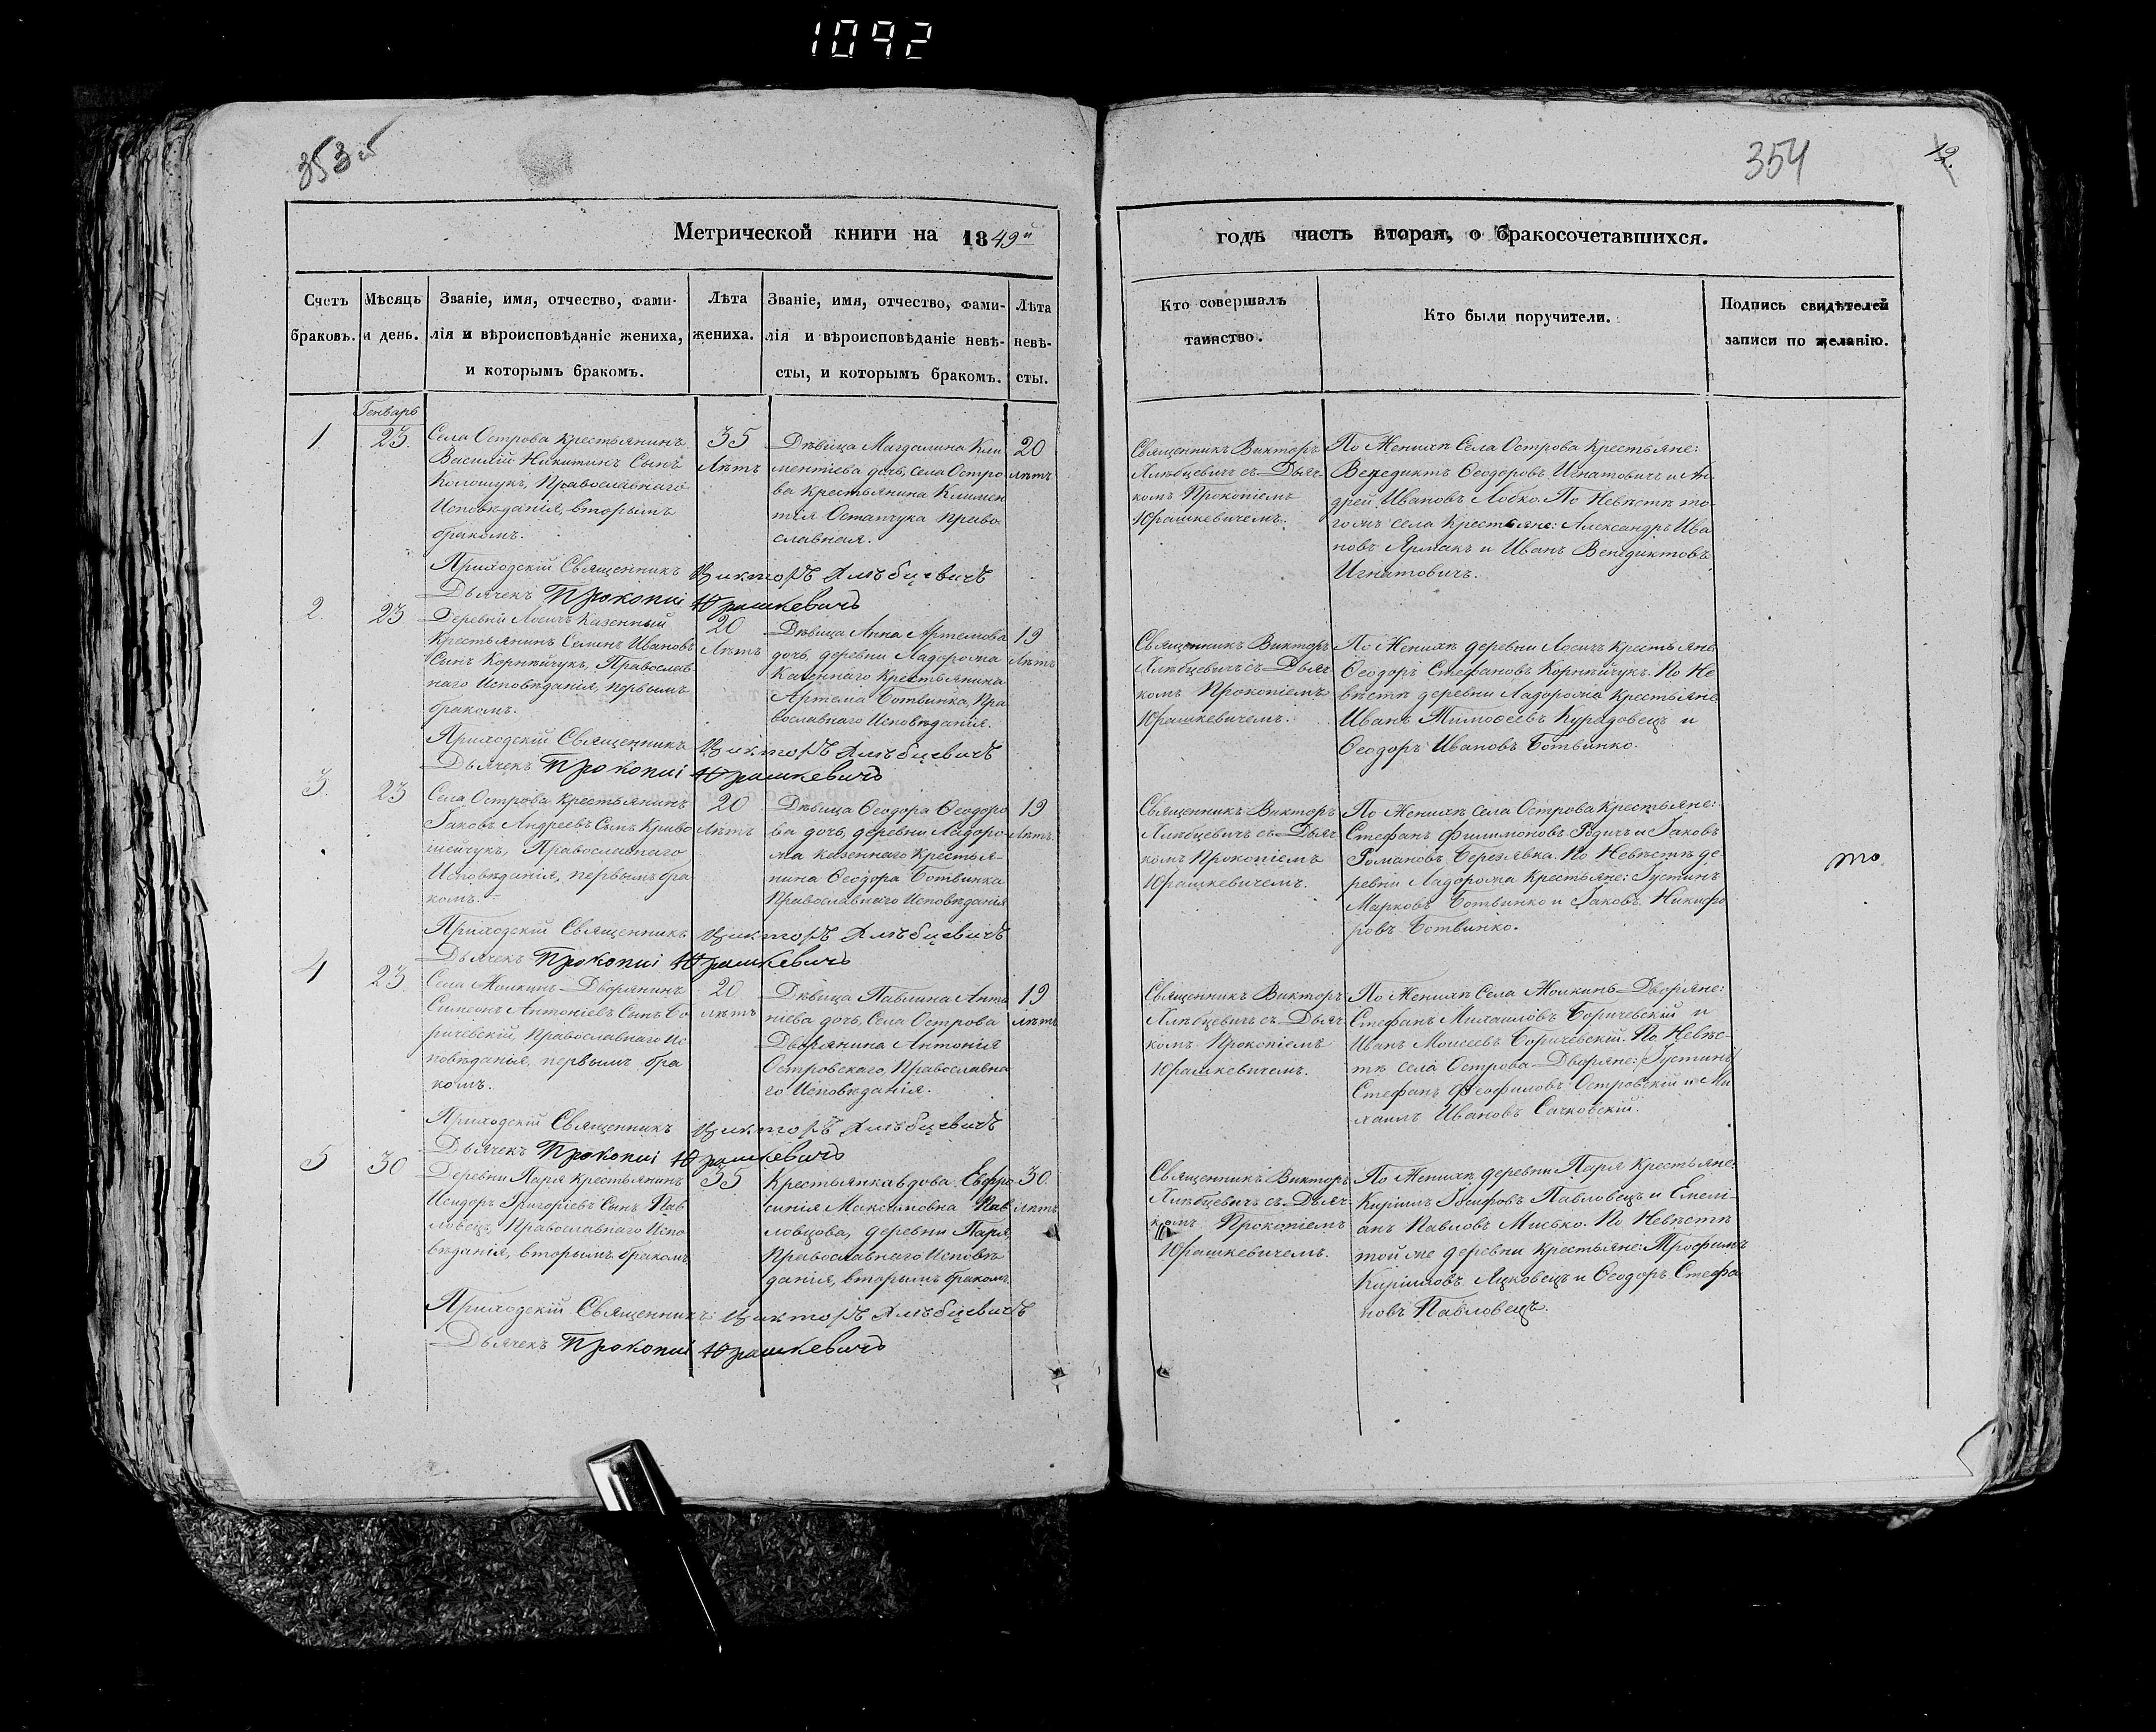 1092
353 об
354
12.
Метрической книги на 1849й
годъ часть вторая, о бракосочетавшихся.
Счетъ браковъ.
Мѣсяцъ и день.
Званіе, имя, отчество, фами-
лія и вѣроисповѣданіе жениха,
и которымъ бракомъ.
Лѣта
жениха.
Званіе, имя, отчество, фами-
лія и вѣроисповѣданіе невѣ-
сты, и которымъ бракомъ.
Лѣта
невѣ-
сты.
Кто совершалъ
таинство.
Кто были поручители.
Подпись свидѣтелей
записи по желанію.
Генварь
1
23.
Села Острова крестьянинъ
Василій Никитинъ Сынъ
Колошукъ, Православнаго
Исповѣданія, вторымъ
бракомъ.
35
Лѣтъ
Дѣвица Магдалина Кли
ментіева дочь, села Остро
ва Крестьянина Климен
тія Остапчука Право
славная.
20
лѣтъ
Священникъ Викторъ
Хлѣбцевичъ съ Дьяч-
комъ Прокопіемъ
Юрашкевичемъ.
По Женихѣ Села Острова Крестьяне:
Венедиктъ Ѳеодоровъ Игнатовичъ и Ан-
дрей Ивановъ Лобко. По Невѣстѣ то-
гожъ села Крестьяне: Александръ Ива
новъ Ярмакъ и Иванъ Венедиктовъ
Игнатовичъ.
Приходскій Священникъ Викторъ Хлѣбцевичъ
Дьячекъ Прокопій Юрашкевичъ
2
23
Деревни Лосичъ Казенный
Крестьянинъ Семенъ Ивановъ
Сынъ Корнѣйчукъ, Православ
наго Исповѣданія, первымъ
бракомъ.
20
Лѣтъ
Дѣвица Анна Артемова
дочь, деревни Ладорожа
Казеннаго Крестьянина
Артема Ботвинка, Пра
вославнаго Исповѣданія.
19
Лѣтъ
Священникъ Викторъ
Хлѣбцевичъ съ Дьяч
комъ Прокопіемъ
Юрашкевичемъ.
По Женихѣ деревни Лосичъ крестьяне
Ѳеодоръ Стефановъ Корнѣйчукъ. По Не
вѣстѣ деревни Ладорожа Крестьяне
Иванъ Тимоѳеевъ Курадовецъ и
Ѳеодоръ Ивановъ Ботвинко.
Приходскій Священникъ Викторъ Хлѣбцевичъ
Дьячекъ Прокопій Юрашкевичъ
3.
23
Села Острова крестьянинъ
Іаковъ Андреевъ Сынъ Криво
шейчукъ, Православнаго
Исповѣданія, первымъ бра
комъ.
20
Лѣтъ
Дѣвица Ѳеодора Ѳеодоро
ва дочь, деревни Ладоро-
жа казеннаго Крестья-
нина Ѳеодора Ботвинка
Православнаго Исповѣданія
19
Лѣтъ.
Священникъ Викторъ
Хлѣбцевичъ съ Дьяч
комъ Прокопіемъ
Юрашкевичемъ.
По Женихѣ села Острова Крестьяне:
Стефанъ Филимоновъ Родичъ и Іаковъ
Романовъ Березявка. По Невѣстѣ де-
ревни Ладорожа Крестьяне: Іустинъ
Марковъ Ботвинко и Іаковъ Никифо
ровъ Ботвинко.
Приходскій Священникъ Викторъ Хлѣбцевичъ
Дьячекъ Прокопій Юрашкевичъ
4
23
Села Жолкинъ Дворянинъ
Симеонъ Антоніевъ Сынъ Бо
ричевскій, Православнаго Ис
повѣданія, первымъ бра
комъ.
20
лѣтъ
Дѣвица Павлина Анто
ніева дочь, Села Острова
Дворянина Антонія
Островскаго, Православна
го Исповѣданія.
19
лѣтъ
Священникъ Викторъ
Хлѣбцевичъ съ Дьяч
комъ Прокопіемъ
Юрашкевичемъ.
По Женихѣ Села Жолкинъ Дворяне:
Стефанъ Михаиловъ Боричевскій и
Иванъ Моисеевъ Боричевскій. По Невѣс-
тѣ села Острова Дворяне: Іустинъ
Стефанъ Феофиловъ Островскій и Ми
хаилъ Ивановъ Сачковскій.
Приходскій Священникъ Викторъ Хлѣбцевичъ
Дьячекъ Прокопій Юрашкевичъ
5
30
Деревни Паря Крестьянинъ
Исидоръ Григоріевъ Сынъ Пав
ловецъ, Православнаго Испо
вѣданія, вторымъ бракомъ
35
Крестьянка вдова Евфро
синія Максимовна Пав
ловцова, деревни Паря,
Православнаго Исповѣ
данія, вторымъ бракомъ
30.
лѣтъ
Священникъ Викторъ
Хлѣбцевичъ съ Дьяч-
комъ Прокопіемъ
Юрашкевичемъ.
По Женихѣ деревни Паря Крестьяне:
Кирилъ Іосифовъ Павловецъ и Емелі-
анъ Павловъ Мисько. По Невѣстѣ
той же деревни крестьяне: Трофимъ
Кириловъ Яцковецъ и Ѳеодоръ Стефа
новъ Павловецъ.
Приходскій Священникъ Викторъ Хлѣбцевичъ
Дьячекъ Прокопій Юрашкевичъ